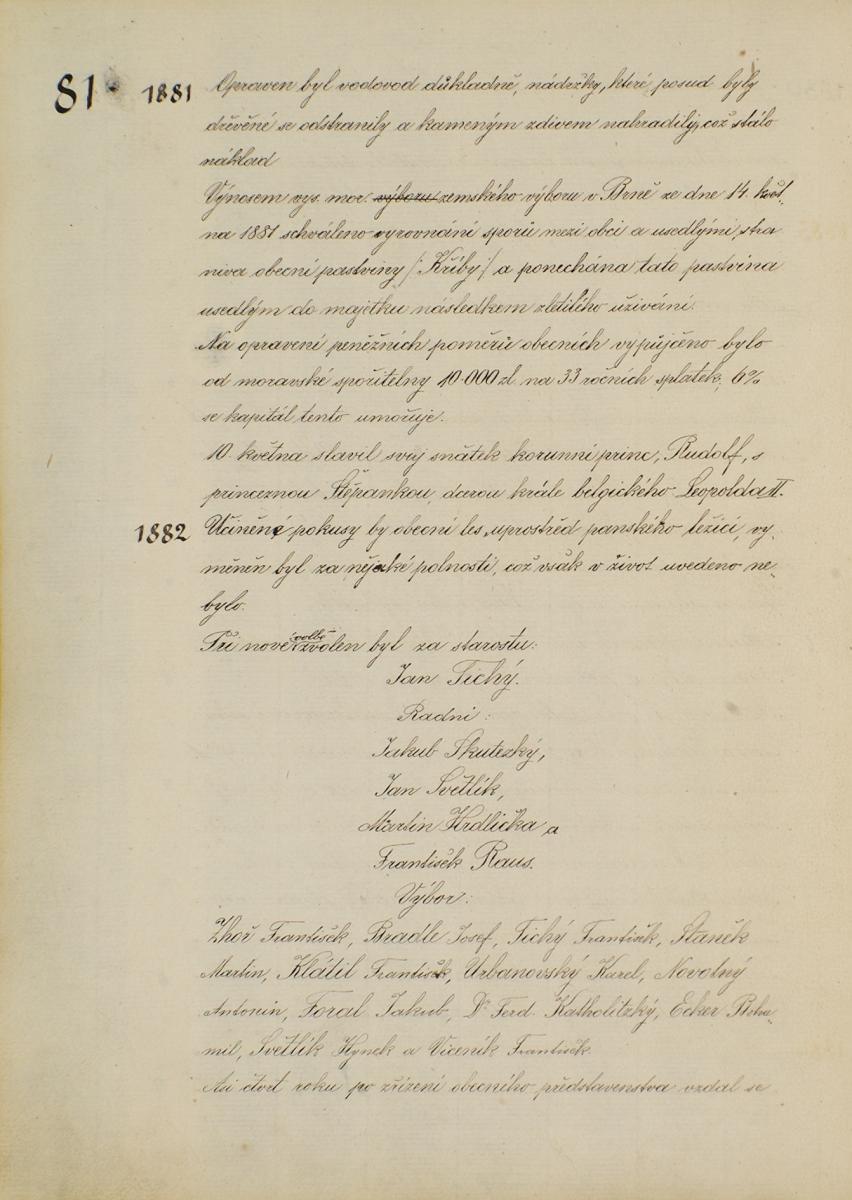 81
1881 Opraven byl vodovod důkladně, nádržky, které posud byly
dřevěné se odstranily a kameným zdivem nahradily, což stálo
náklad
Výnosem vys. mor. výboru zemského výboru v Brně ze dne 14. květ.
na 1881 schváleno vyrovnání sporů mezi obcí a usedlými stra
niva obecní pastviny /: Křiby :/ a ponechána tato pastvina
usedlým do majetku následkem zletilého užívání.
Na opravení peněžních poměrů obecních vypůjčeno bylo
od moravské spořitelny 10.000 zl na 33 ročních splatek, 6%
se kapitál tento umořuje.
10. května slavil svůj sňatek korunní princ, Rudolf, s
princeznou Štěpankou, dcerou krále belgického Leopolda II.
1882 Učiněné pokusy by obecní les uprostřed panského ležící, vy-
měněn byl za nějaké polnosti, což však v život uvedeno ne-
bylo.
Při nové volbě zvolen byl za starostu:
Jan Tichý.
Radní:
Jakub Skutezký,
Jan Světlík,
Martin Hrdlička a
František Raus.
Výbor:
Zhoř František, Bradle Josef, Tichý František, Staněk
Martin, Klátil František, Urbanovský Karel, Novotný
Antonín, Foral Jakub, Dr Ferd. Katholitzký, Ecker Bohu-
mil, Světlík Hynek a Viceník František.
Asi čtvrt roku po zřízení obecního představenstva vzdal se